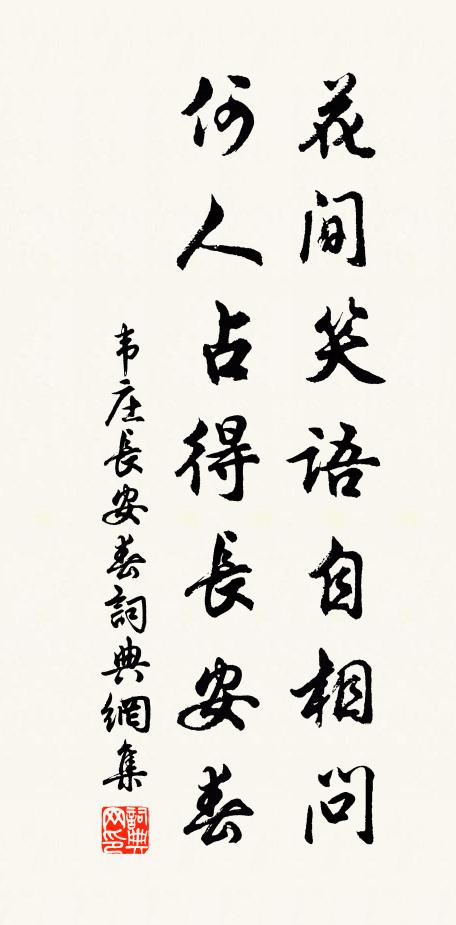 花间笑語自相問
何人占得長安春
韦庄長安春詞典網集
詞典
网印